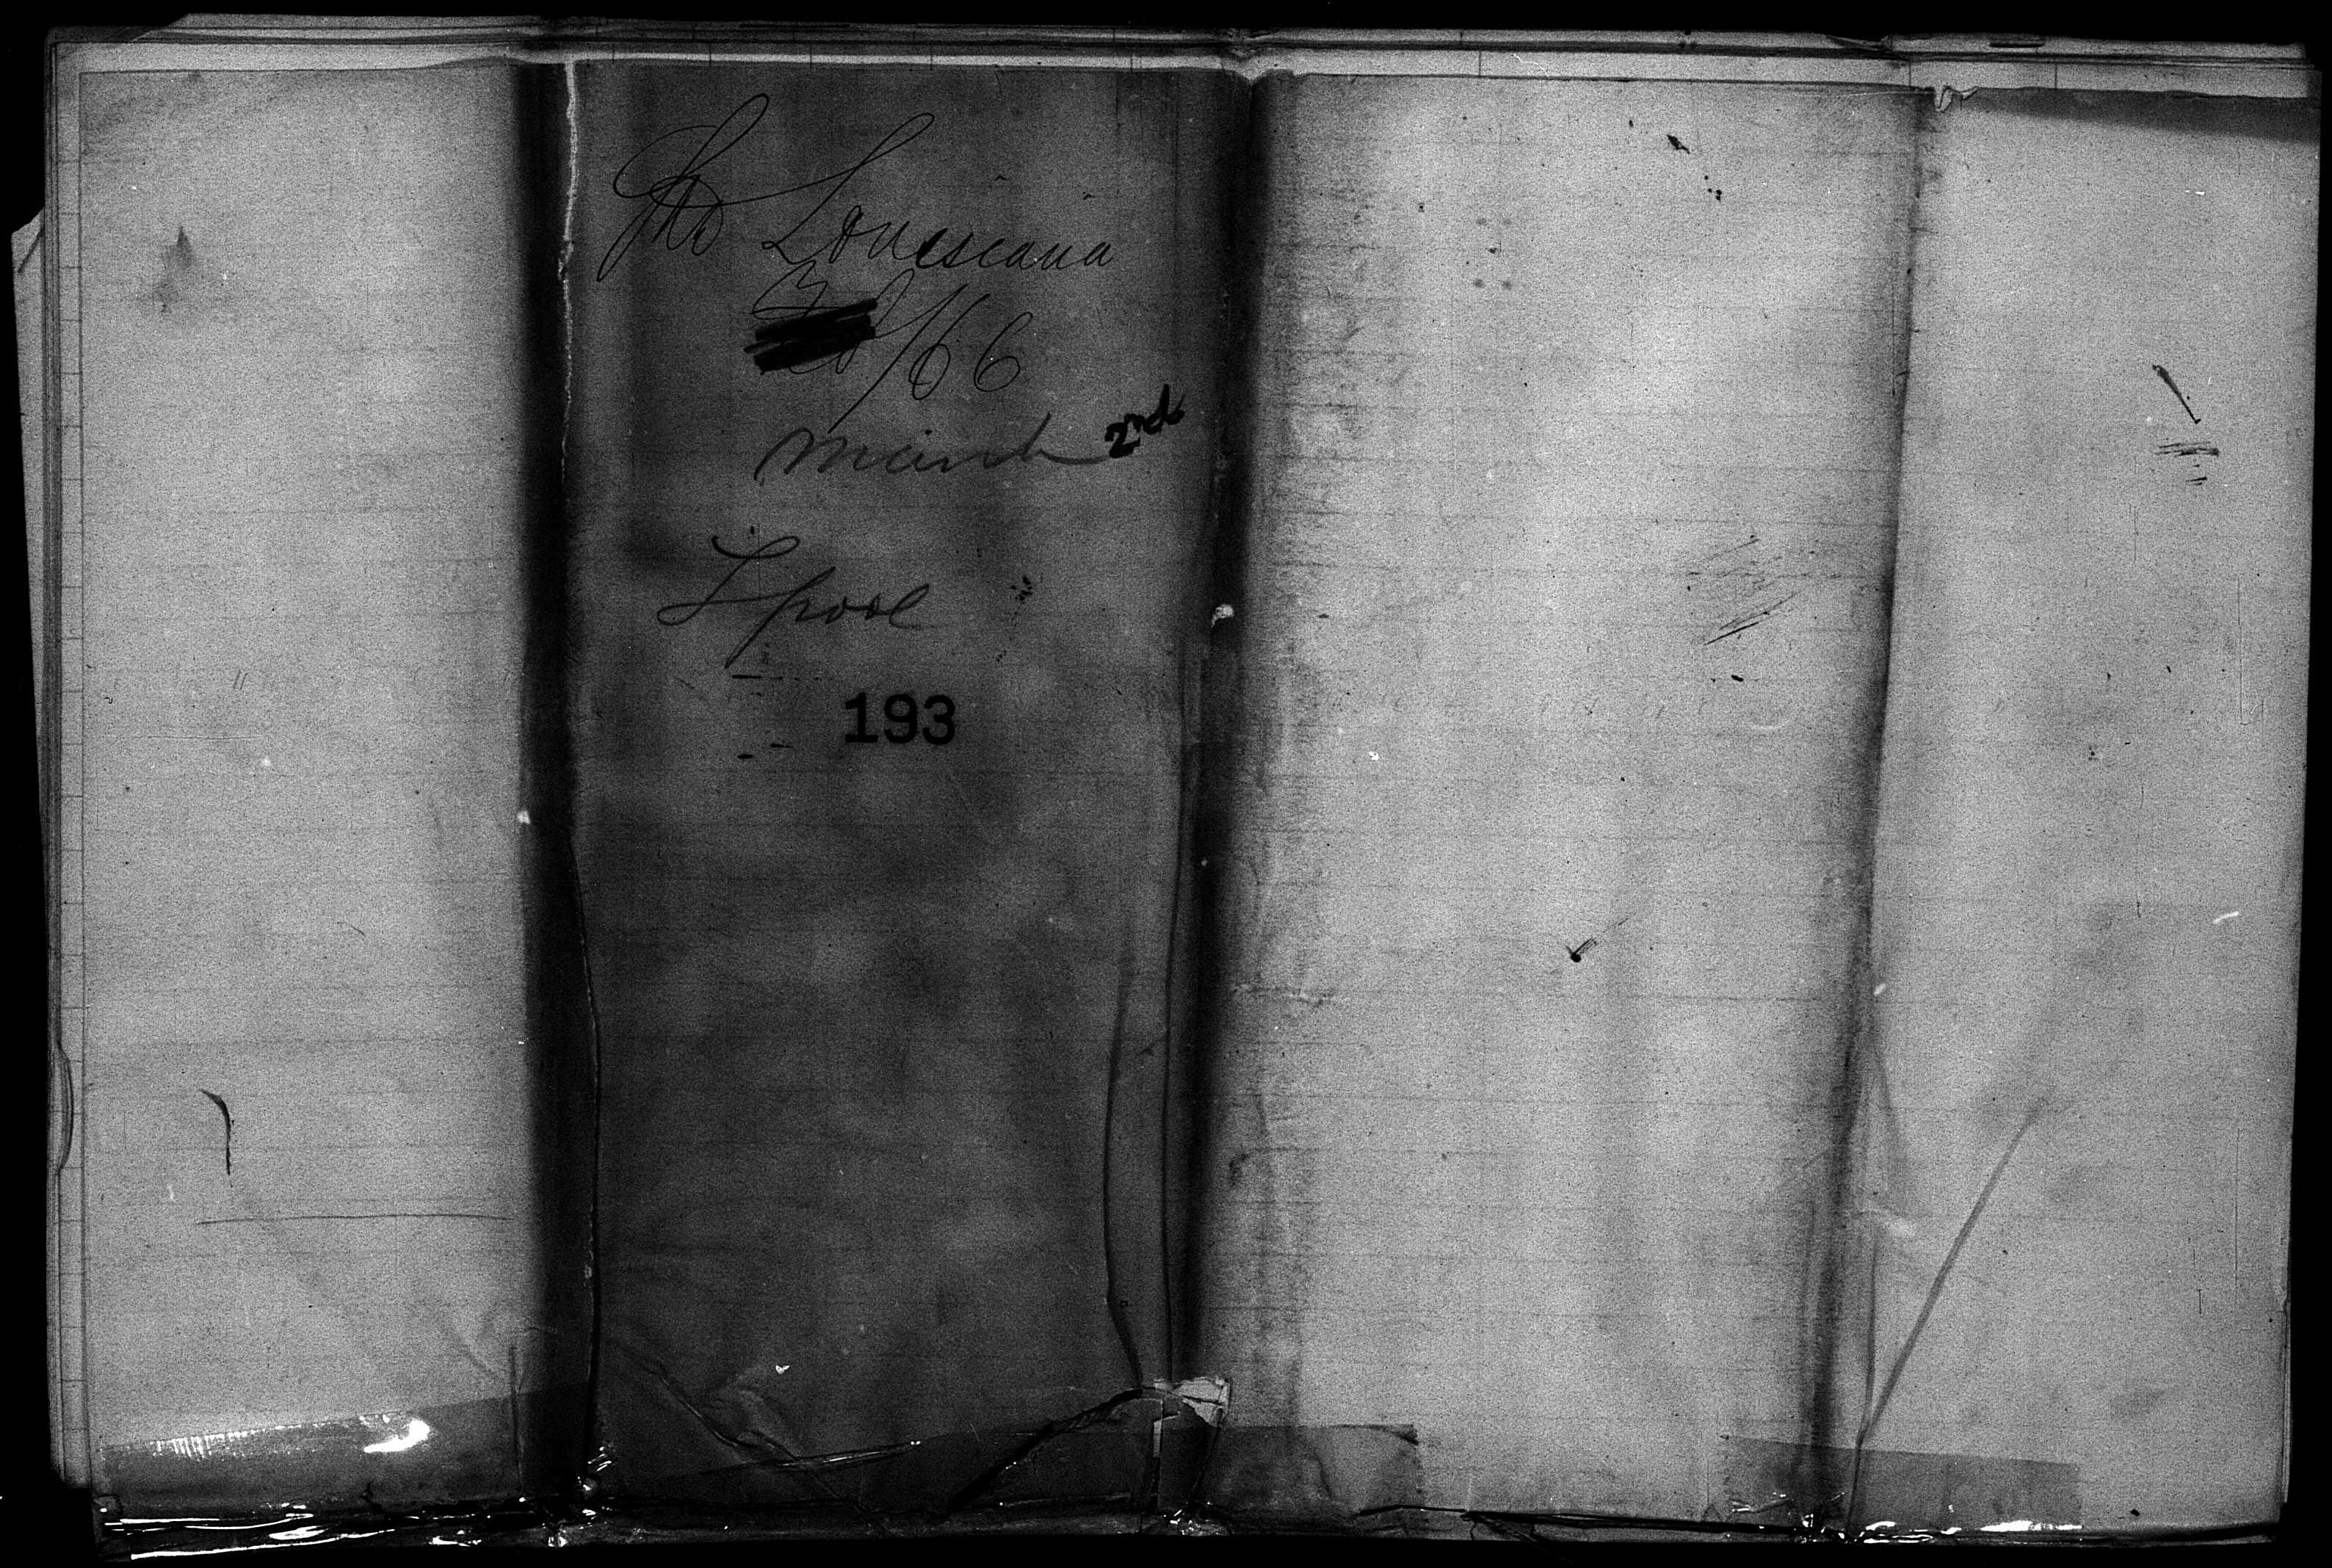 Str Louisiana
/66
March 2nd
Lpool
193